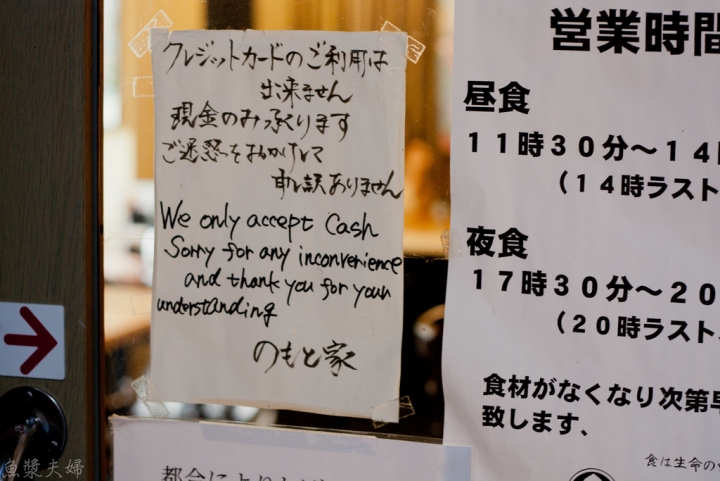 クレジットカードのご利用は
出来ません
現金のみ承ります
ご迷惑をおかけして
申し訳ありません
We only accept Cash
Sorry for any inconvenience
and thank you for your
understanding
のもと家
営業時間
昼食
11時30分～14
(14時ラスト
夜食
17時30分～20
(20時ラスト
食材がなくなり次第早
致します、
食は生命の
魚漿夫婦